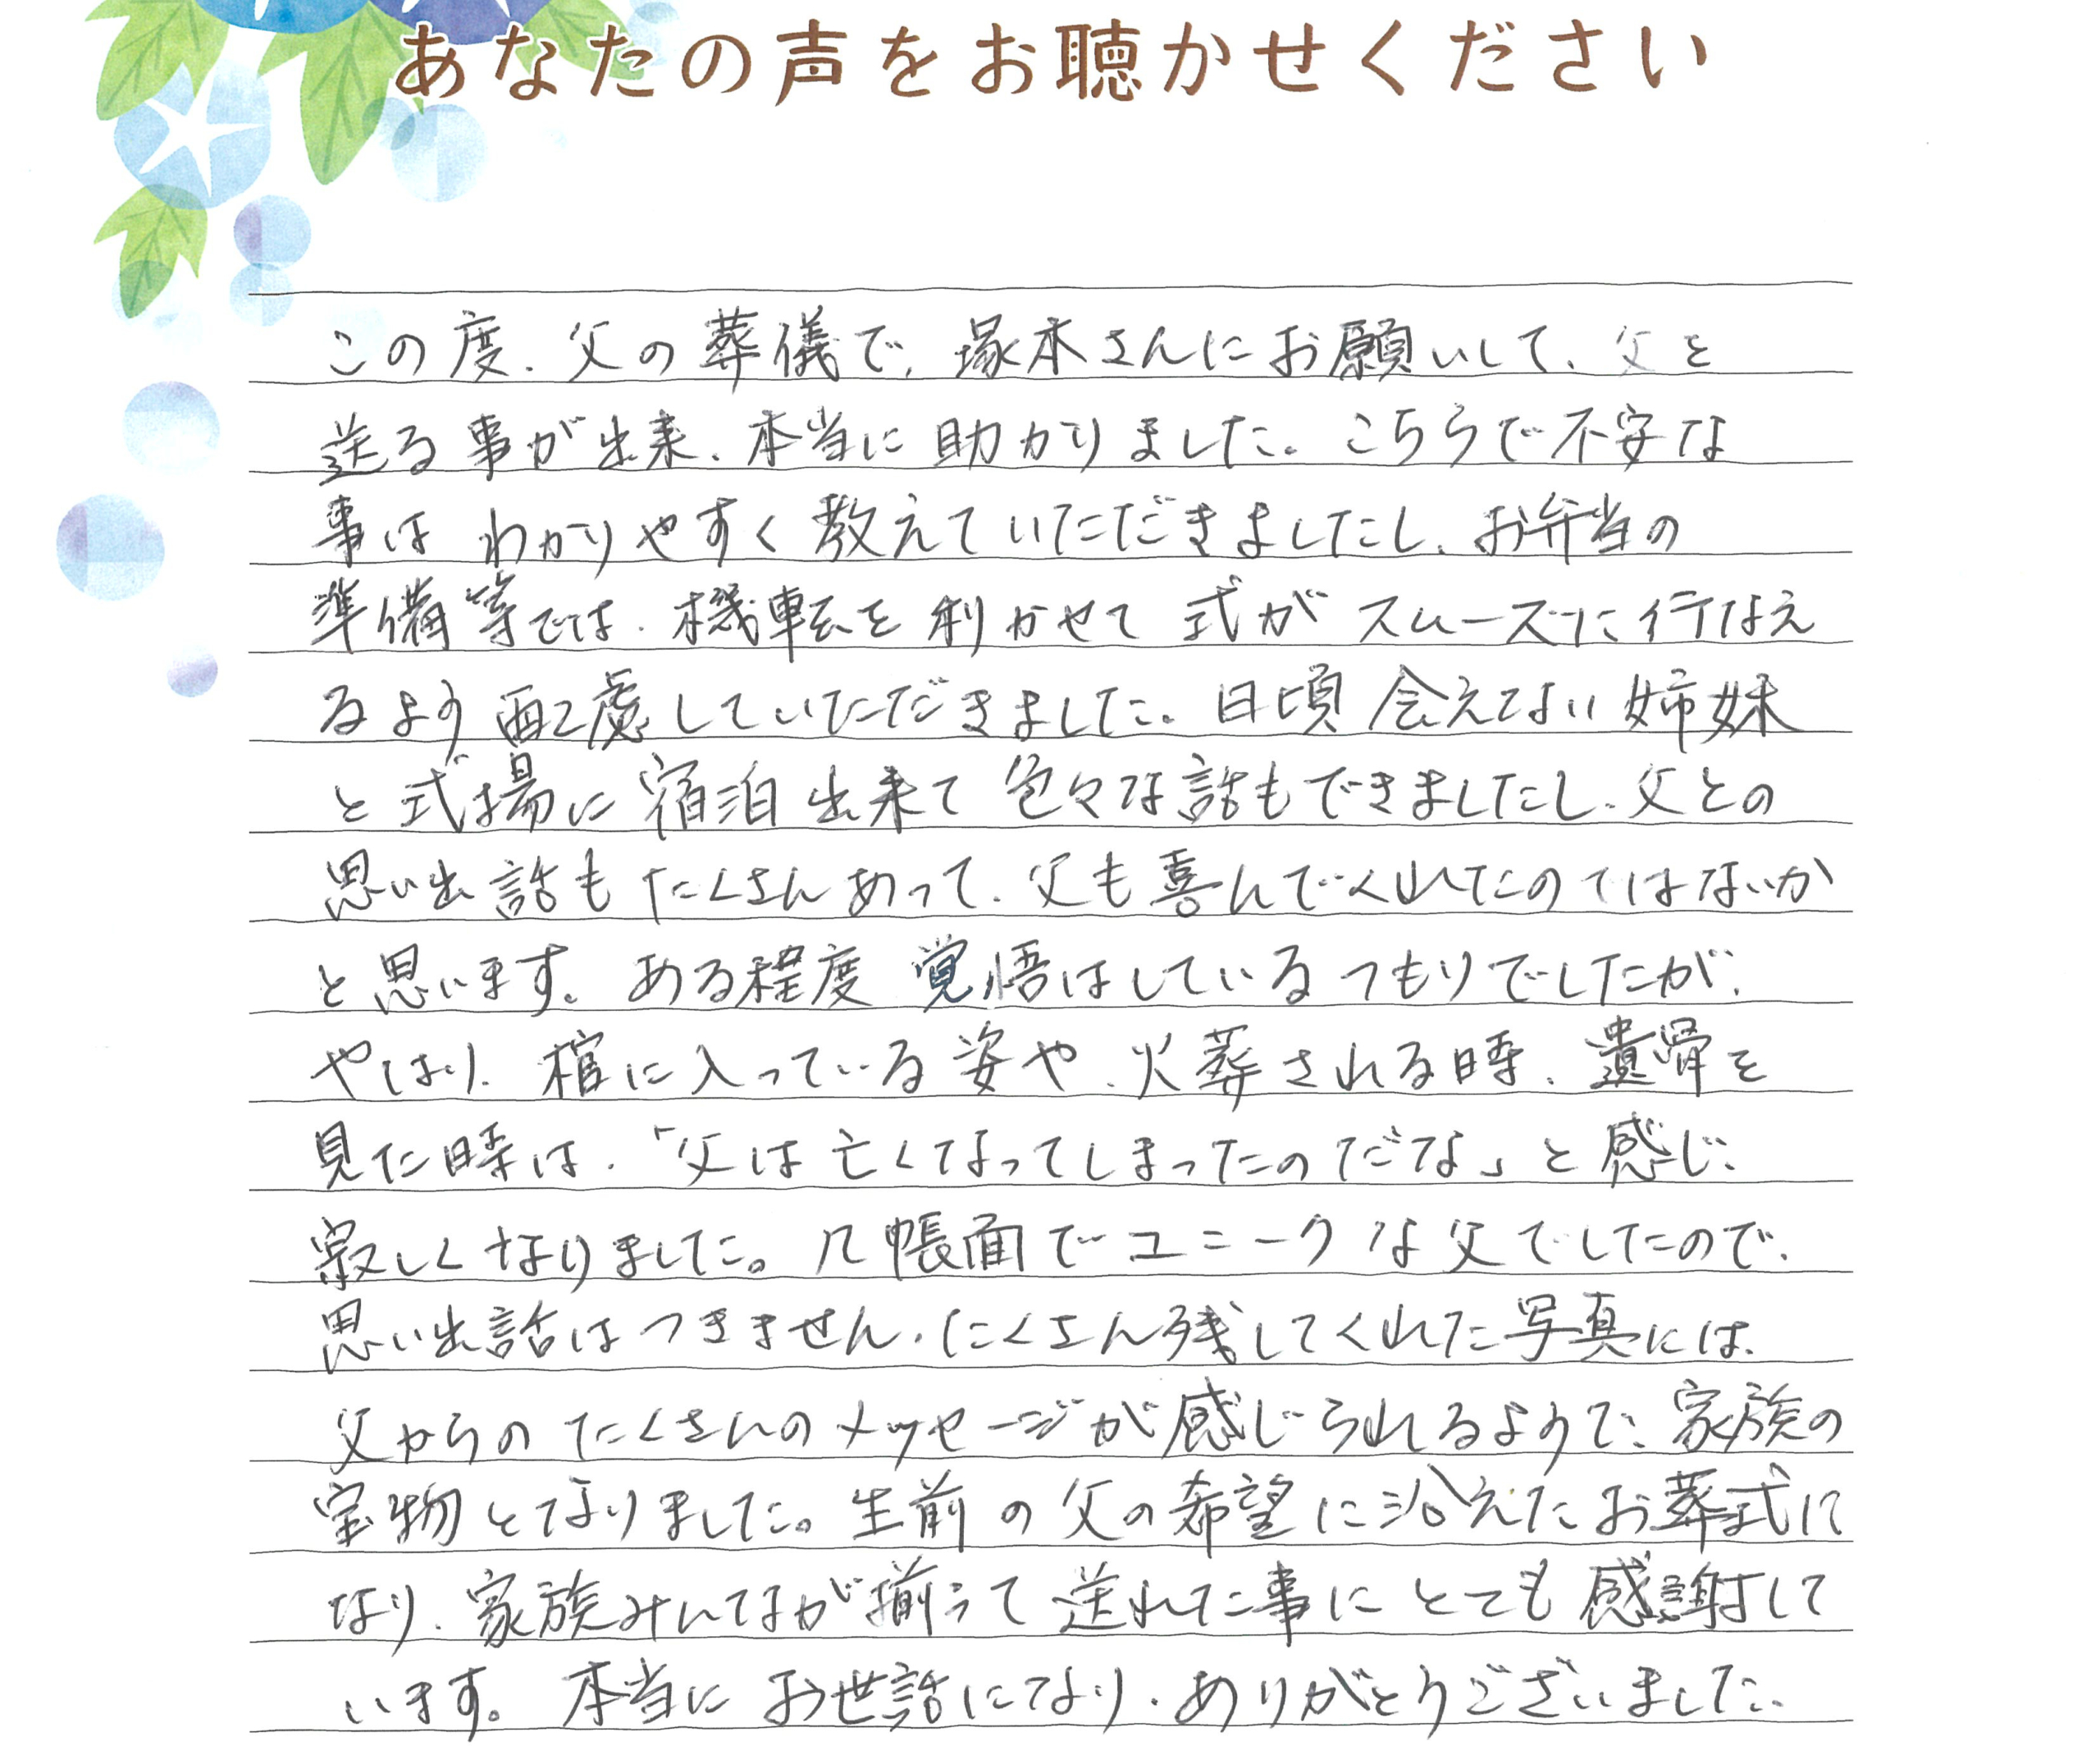 あなたの声をお聴かせください
この度、父の葬儀で、塚本さんにお願いして、父を
送る事が出来、本当に助かりました。こちらで不安な
事は わかりやすく教えていただきましたし、お弁当の
準備等では、機転を利かせて 式が スムーズに行なえ
るよう配慮していただきました。日頃 会えてない姉妹
と式場に宿泊出来て 色々な話もできましたし、父との
思い出話も たくさんあって、父も喜んでくれたのではないか
と思います。ある程度 覚悟はしているつもりでしたが、
やはり、棺に入っている姿や、火葬される時、遺骨を
見た時は、「父は亡くなってしまったのだな」と感じ、
寂しくなりました。几帳面でユニークな父でしたので、
思い出話はつきません。たくさん残してくれた写真には、
父からの たくさんのメッセージが感じられるようで、家族の
宝物となりました。生前の父の希望に沿えたお葬式に
なり、家族みんなが揃って送れた事に とても感謝して
います。本当に お世話になり、ありがとうございました。